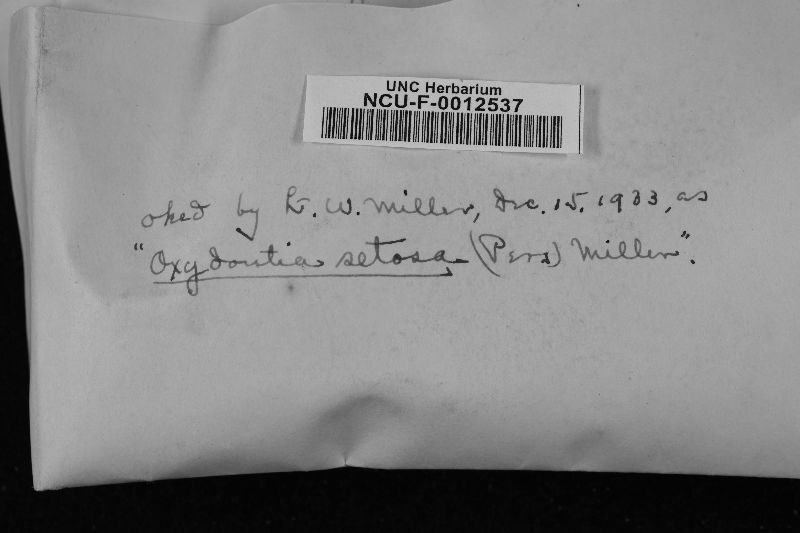 UNC Herbarium
NCU-F-0012537
oked by L. W. Miller, Dec. 15, 1933, as
"Oxydontia setosa (Pers) Miller".